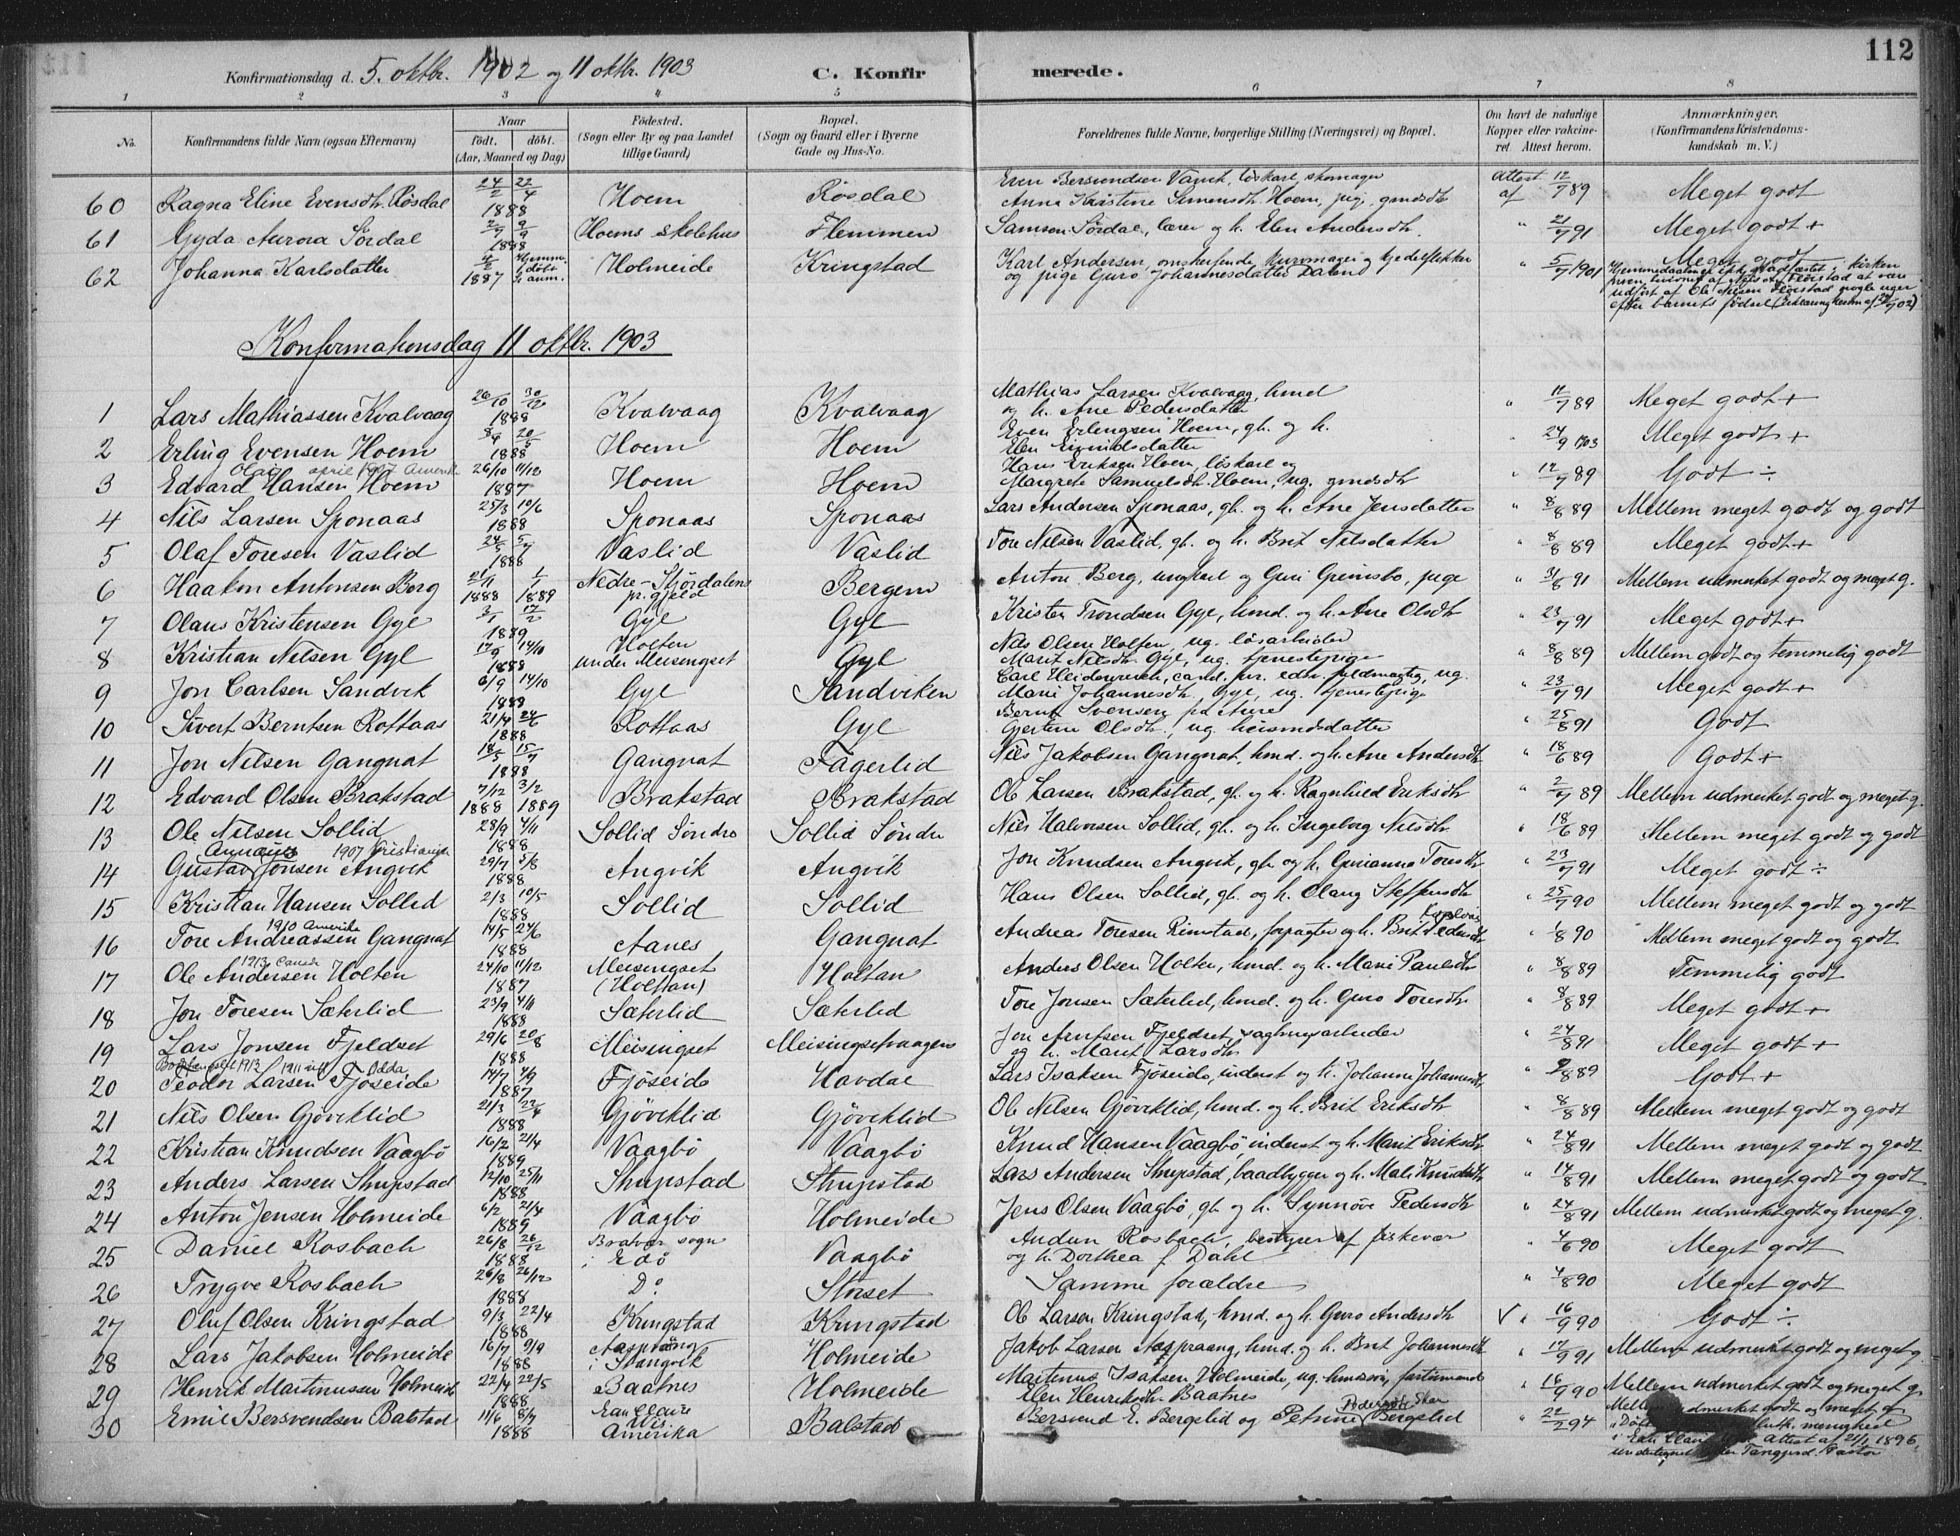 112
Konfirmationsdag d. 5. oktbr. 1902 og 11 oktbr. 1903 C. Konfirmerede.
1 2 3 4 5 6 7 8
No. Konfirmandens fulde Navn (ogsaa Efternavn) Naar födt. döbt. (Aar, Maaned og Dag) Födested. (Sogn eller By og paa Landet tillige Gaard) Bopæl. (Sogn og Gaard eller i Byerne Gade og Hus-No. Forældrenes fulde Navne, borgerlige Stilling (Næringsvei) og Bopæl. Om havt de naturlige Kopper eller vakcineret. Attest herom. Anmærkninger. (Konfirmandens Kristendomskundskab m. V.)
60 Ragna Eline Evensdtr. Rösdal 24/2 22/4 1888 Hoem Rösdal Even Bersvendsen Vanck, löskarl, skomager Anna Kristine Simensdtr. Hoem, pige, gmdsdtr Attest af 12/7 89 Meget godt
61 Gyda Aurora Sördal 2/7 9/9 1888 Hoems skolehus Flemmen Samson Sördal, lærer og h. Elen Andersdtr. " 21/7 91 Meget godt+
62 Johanna Karlsdatter 4/2 Hjemmedöbt 1887 Holmeide Kringstad Karl Andersen, omstreifende kurvmager og kjedelflikker og pige Guro Johannesdatter Daland " 5/7 1901 Meget godt
udfört af Ole Nilsen Fløistad nogle uger
efter barnets födsel
Konfirmationsdag 11 oktbr. 1903
1 Lars Mathiassen Kvalvaag 26/10 30/12 1888 Kvalvaag Kvalvaag Mathias Larsen Kvalvaag, hmd og h. Ane Pedersdatter " 11/7 89 Meget godt+
2 Erling Evensen Hoem 8/4 20/5 1888 Hoem Hoem Even Erlingsen Hoem, gb. og h. Elen Eivindsdatter " 24/9 1903 Meget godt+
Olai april 1907 Amerik
3 Edvard Hansen Hoem 26/10 11/12 1887 Hoem Hoem Hans Eriksen Hoem, löskarl og Margrete Samuelsdtr. Hoem, ug. gmdsdtr " 12/7 89 Godt ÷
4 Nils Larsen Sponaas 25/3 10/6 1888 Sponaas Sponaas Lars Andersen Sponaas, gb. og h. Ane Jensdatter " 8/8 89 Mellem meget godt og godt
5 Olaf Toresen Vaslid 24/5 5/7 1888 Vaslid Vaslid Tore Nilsen Vaslid, gb. og h. Brit Nilsdatter " 8/8 89 Meget godt+
6 Haakon Antonsen Berg 21/11 1888 1/1 1889 Nedre-Stjördalens pr.gjeld Bergem Anton Berg, ungkarl og Guri Grimsbo, pige " 31/8 91 Mellem udmerket godt og meget g.
7 Olaus Kristensen Gyl 3/1 17/2 1889 Gyl Gyl Kristen Trondsen Gyl, hmd. og h. Ane Olsdtr " 23/7 91 Meget godt+
8 Kristian Nilsen Gyl 17/9 14/10 1888 Holten under Meisingset Gyl Nils Olsen Holten, ug. lösarbeider Marit Nilsdtr. Gyl, ug. tjenestepige " 8/8 89 Mellem godt og temmelig godt
9 Jon Carlsen Sandvik 6/9 14/10 1888 Gyl Sandviken Carl Heidenreich, cand. jur. edsv. fuldmægtig, ug. Marie Johannesdtr. Gyl, ug. tjenestepige " 23/7 91 Meget godt+
10 Sivert Berntsen Rottaas 21/4 24/6 1888 Rottaas Gyl Bernt Svensen fra Aure Gjertine Olsdtr., ug. husmdsdatter " 25/8 91 Godt
11 Jon Nilsen Gangnat 18/5 15/7 1888 Gangnat Fagerlid Nils Jakobsen Gangnat, hmd. og h. Ane Andersdtr " 18/6 89 Godt+
12 Edvard Olsen Brakstad 7/12 1888 3/2 1889 Brakstad Brakstad Ole Larsen Brakstad, gb. og h. Ragnhild Eriksdtr " 2/7 89 Mellem udmerket godt og meget g.
13 Ole Nilsen Sollid 28/9 4/11 1888 Sollid Söndre Sollid Söndre Nils Halvorsen Sollid, gb. og h. Ingeborg Nilsdtr. " 18/6 89 Mellem meget godt og godt
1907 Kristiania
14 Gustav Jonsen Angvik 29/7 5/8 1888 Angvik Angvik Jon Knudsen Angvik, gb og h. Gurianna Toresdtr " 23/7 91 Meget godt ÷
15 Kristian Hansen Sollid 2/3 10/5 1888 Sollid Sollid Hans Olsen Sollid, gb. og h. Olaug Steffensdtr " 25/7 90 Mellem meget godt og godt
1910 Amerika
16 Tore Andreassen Gangnat 14/5 24/6 1888 Aanes Gangnat Andreas Toresen Rimstad, forpagter og h. Brit Pedersdtr " 1/8 90 Mellem meget godt og godt
1913 Canada
17 Ole Andersen Holten 24/10 11/12 1887 Meisingset (Holtan) Holtan Anders Olsen Holten, hmd. og h. Marie Paulsdtr " 8/8 89 Temmelig godt
18 Jon Toresen Sæterlid 23/9 4/11 1888 Sæterlid Sæterlid Tore Jonsen Sæterlid, hmd. og h. Guro Toresdtr. " 8/8 89 Meget godt+
19 Lars Jonsen Fjeldset 29/6 20/8 1888 Meisingset Meisingsetvaagen Jon Arntsen Fjeldset, sagbrugsarbeider og h. Marit Larsdtr " 24/8 91 Meget godt+
1913 1911 Odda
20 Teodor Larsen Fjöseide 14/7 4/9 1887 Fjöseide Havdal Lars Isaksen Fjöseide, inderst og h. Johanne Johannesdtr " 8/8 89 Godt+
21 Nils Olsen Gjöviklid 21/3 22/4 1888 Gjöviklid Gjöviklid Ole Nilsen Gjöviklid, hmd. og h. Brit Eriksdtr " 8/8 89 Mellem meget godt og godt
22 Kristian Knudsen Vaagbö 16/2 21/4 1889 Vaagbö Vaagbö Knud Hansen Vaagbö, inderst og h. Marit Eriksdtr " 24/8 91 Mellem meget godt og godt
23 Anders Larsen Strupstad 12/10 25/11 1888 Strupstad Strupstad Lars Andersen Strupstad, baadbygger og h. Mali Knudsdtr " 14/8 91 Mellem meget godt og godt
24 Anton Jensen Holmeide 6/2 21/4 1889 Vaagbö Holmeide Jens Olsen Vaagbö, gb og h. Synnöve Pedersdtr " 24/8 91 Mellem udmerket godt og meget g.
25 Daniel Rosbach 26/8 26/12 1888 Bratvær sogn i Edö Vaagbö Andun Rosbach, bestyrer af fiskevær og h. Dorthea f. Dahl " 4/6 90 Meget godt
26 Trygve Rosbach 26/8 26/12 1888 Do. Storset Samme forældre " 4/8 90 Meget godt
27 Oluf Olsen Kringstad 9/3 22/4 1888 Kringstad Kringstad Ole Larsen Kringstad, hmd. og h. Guro Andersdtr V " 16/9 90 Godt ÷
28 Lars Jakobsen Holmeide 16/7 9/9 1888 Aaspraang i Stangvik Holmeide Jakob Larsen Aaspraang, hmd. og h. Brit Johannesdtr " 17/9 91 Mellem udmerket godt og meget g.
29 Henrik Martinussen Holmeide 22/4 22/5 1888 Baatnes Holmeide Martinus Isaksen Holmeide, ug. Elen Henriksdtr. Baatnes " 16/9 90 Mellem udmerket godt og meget g.
30 Emil Bersvendsen Balstad 11/6 8/7 1888 Eau Claire Wis. Amerika Balstad Bersvend E. Bergslid og Petrine Pedersdtr Bergslid " 22/2 94 Mellem udmerket godt og meget g.
luth. menighed
i Eau Claire Attest af 21/1 1896,